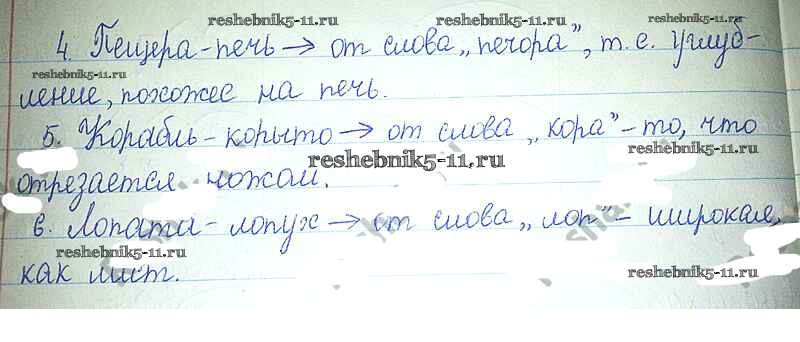 reshebnik5-11.ru
reshebnik5-11.ru
4. Пещера - печь → от слова „печора”, т. е. углуб-
reshebnik5-11.ru
ление, похожее на печь.
5. Корабль - корыто → от слова „кора” - то, что
reshebnik5-11.ru
отрезается ножом.
6. Лопата - лопух → от слова „лоп” - широкая,
reshebnik5-11.ru
как лист.
reshebnik5-11.ru